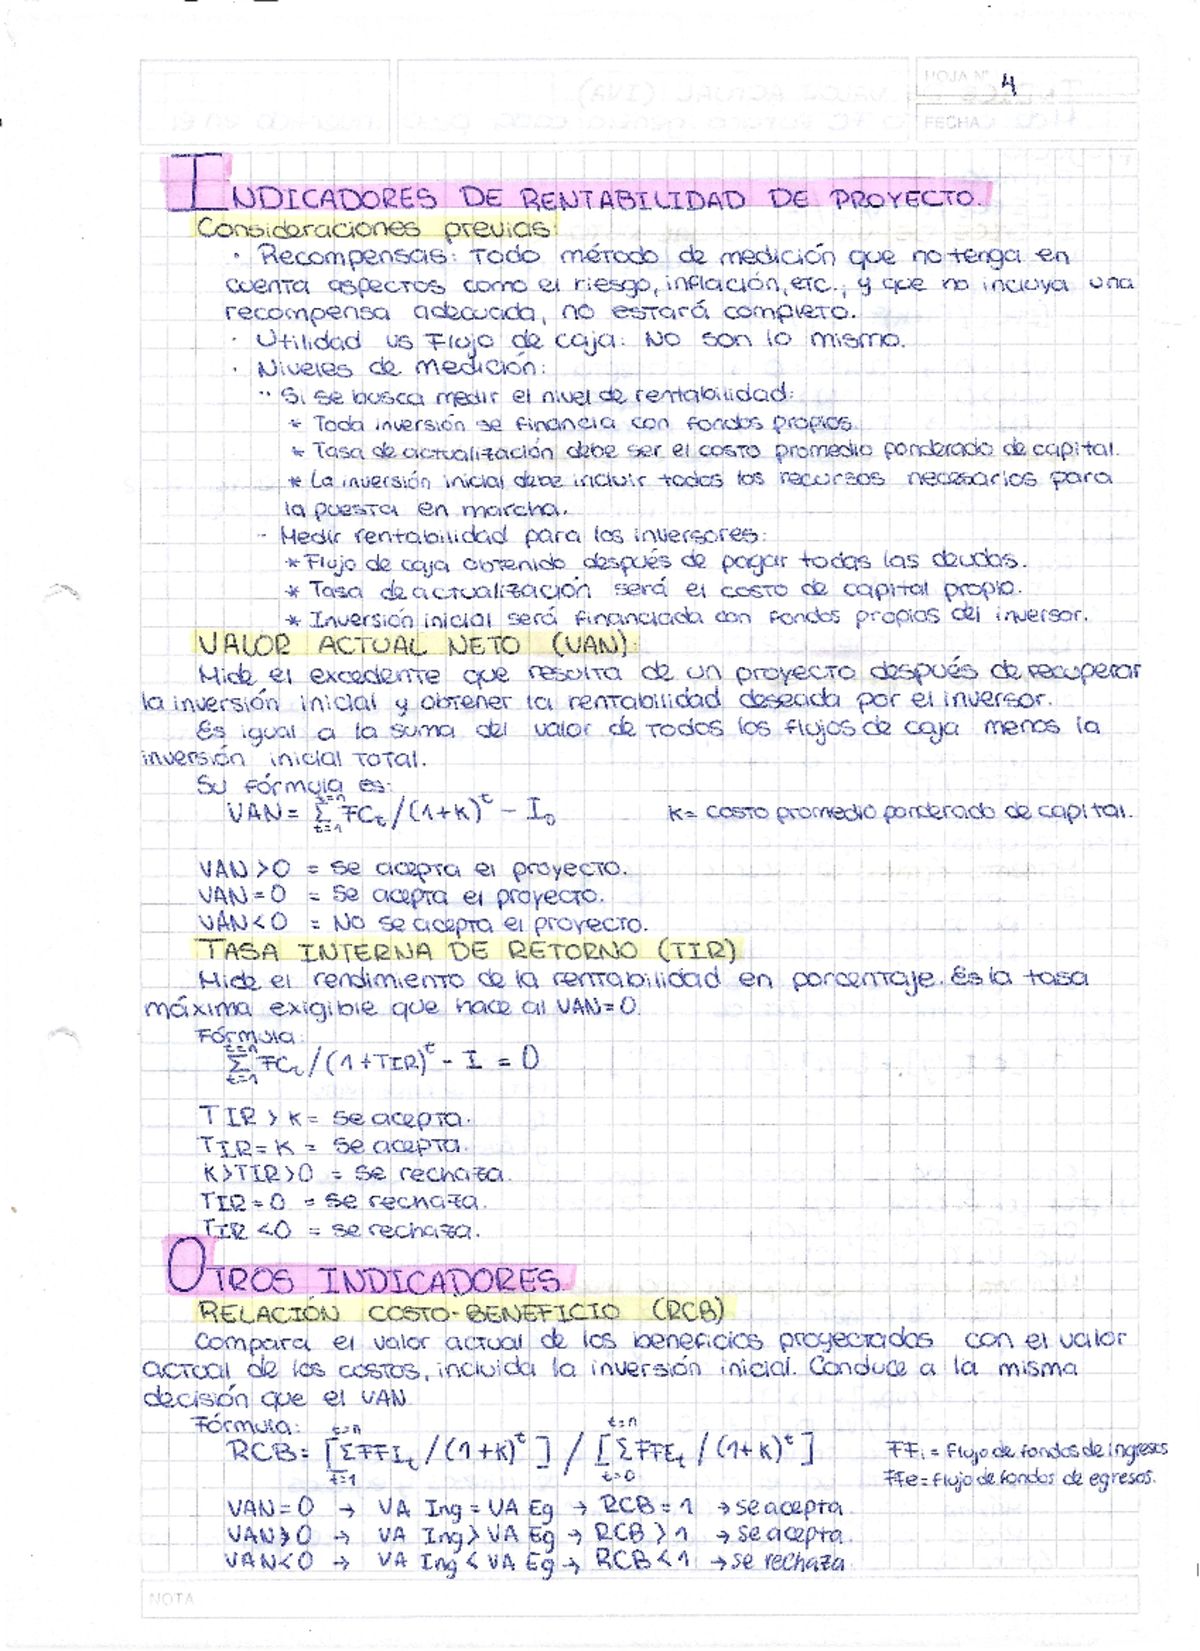 HOJA N° 4
FECHA
INDICADORES DE RENTABILIDAD DE PROYECTO.
Consideraciones previas:
· Recompensas: Todo método de medición que no tenga en
cuenta aspectos como el riesgo, inflación, etc., y que no incluya una
recompensa adecuada, no estará completo.
· Utilidad vs Flujo de caja: No son lo mismo.
· Niveles de medición:
·· Si se busca medir el nivel de rentabilidad:
* Toda inversión se financia con fondos propios.
* Tasa de actualización debe ser el costo promedio ponderado de capital.
* La inversión inicial debe incluir todos los recursos necesarios para
la puesta en marcha.
·· Medir rentabilidad para los inversores:
* Flujo de caja obtenido después de pagar todas las deudas.
* Tasa de actualización será el costo de capital propio.
* Inversión inicial será financiada con fondos propios del inversor.
VALOR ACTUAL NETO (VAN):
Mide el excedente que resulta de un proyecto después de recuperar
la inversión inicial y obtener la rentabilidad deseada por el inversor.
Es igual a la suma del valor de todos los flujos de caja menos la
inversión inicial total.
Su fórmula es:
t=n
VAN= Σ FCt/(1+K)^t - I₀ K= Costo promedio ponderado de capital.
t=1
VAN>0 = Se acepta el proyecto.
VAN=0 = Se acepta el proyecto.
VAN<0 = No se acepta el proyecto.
TASA INTERNA DE RETORNO (TIR)
Mide el rendimiento de la rentabilidad en porcentaje. Es la tasa
máxima exigible que hace al VAN=0.
Fórmula:
t=n
Σ FCt/(1+TIR)^t - I = 0
t=1
TIR > K = Se acepta.
TIR = K = Se acepta.
K>TIR>0 = Se rechaza.
TIR = 0 = Se rechaza.
TIR <0 = Se rechaza.
OTROS INDICADORES
RELACIÓN COSTO-BENEFICIO (RCB)
Compara el valor actual de los beneficios proyectados con el valor
actual de los costos, incluida la inversión inicial. Conduce a la misma
decisión que el VAN.
Fórmula: t=n t=n
RCB= [ΣFFIt/(1+K)^t] / [ΣFFEt/(1+K)^t] FFi = Flujo de fondos de ingresos
t=1 t=0 FFe = flujo de fondos de egresos.
VAN=0 → VA Ing = VA Eg → RCB = 1 → Se acepta.
VAN>0 → VA Ing > VA Eg → RCB > 1 → Se acepta.
VAN<0 → VA Ing < VA Eg → RCB < 1 → Se rechaza.
NOTA